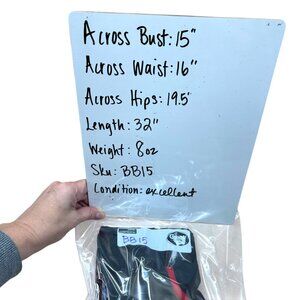 Across Bust: 15"
Across Waist: 16"
Across Hips: 19.5'
Length: 32"
Weight: 8oz
Sku: BB15
Condition: excellent
BB15